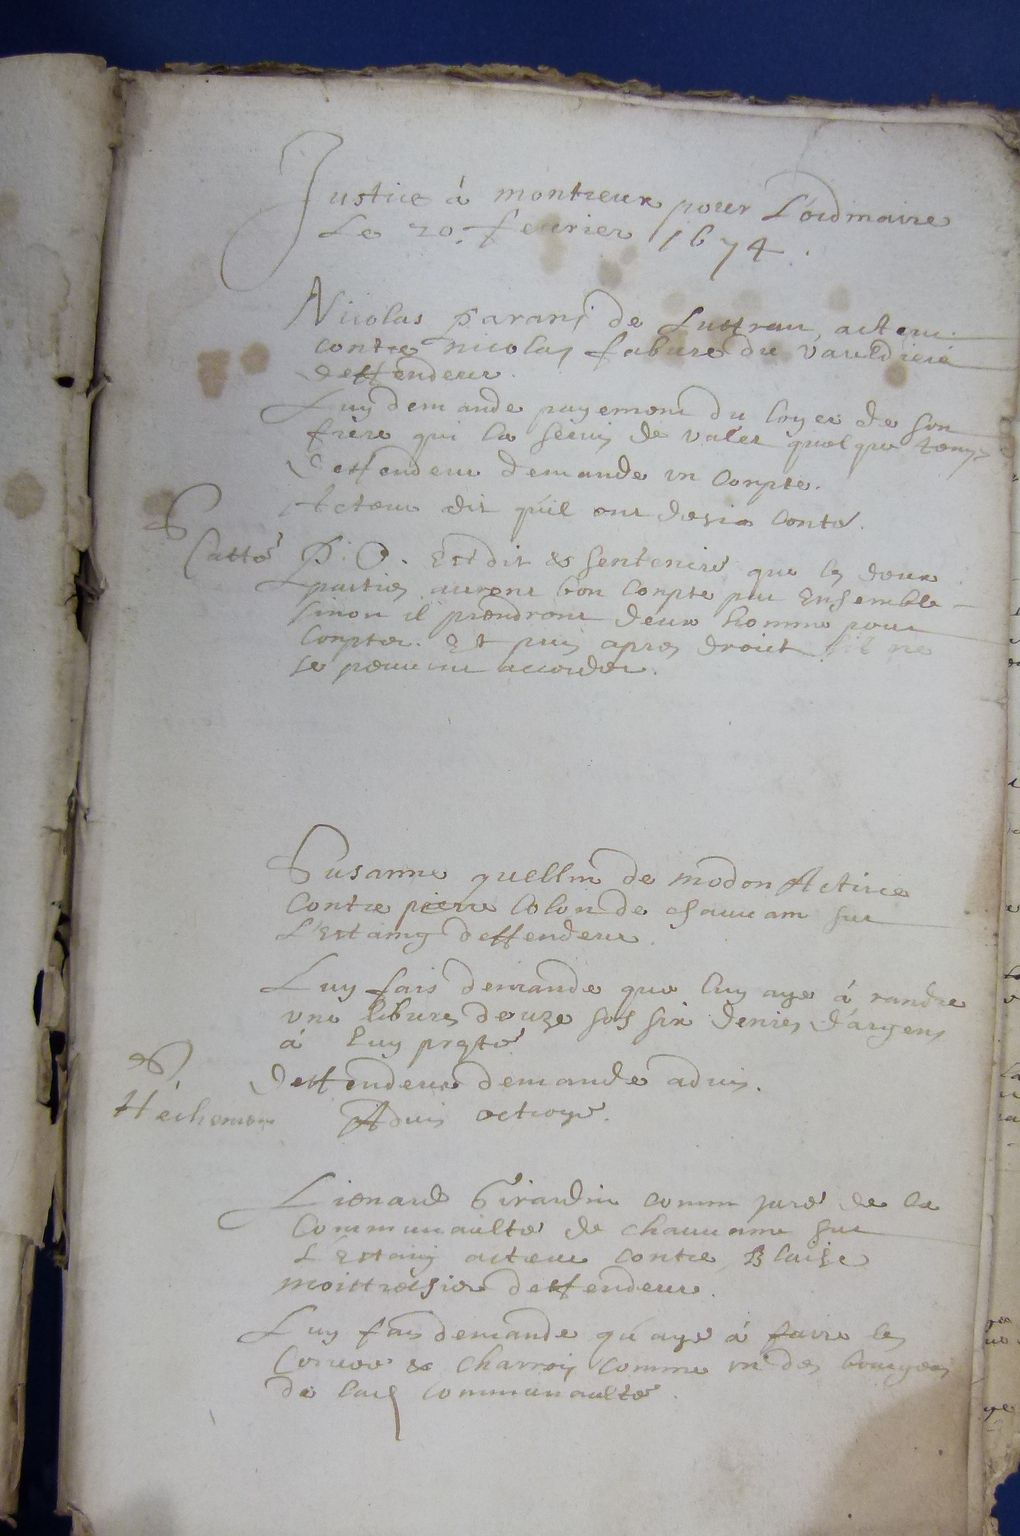 Justice à montreux pour L'ordinaire
Le 20. feurier 1674.
Nicolas parans de Lustran acteur
contre nicolas fabure du Vauldieié
deffendeur.
Luy demande payement du loyer de son
frere qui la serui de valet quelque temps
deffendeur demande vn Compte.
Acteur dit qu'il ont desia Conté.
Catté
P. O. Est dit & sentencié que les deux
parties auront bon Compte par Ensemble
sinon il prendront deux homme pour
Compter. Et puis apres droict sil ne
se peuuent accorder.
Susanne quellin de modon Actrice
Contre pierre Colon de chauuam sur
L'Estaing deffendeur.
Luy fais demande que luy aye à randre
vne libures douze sols six deniers d'argens
à luy presté
deffendeur demande aduis.
Héchemen
Aduis octroyé.
Lienard Girardin comm juré de la
Communaulté de chauuame sur
L'Estaing acteur contre Blaise
moittresier deffendeur.
Luy fais demande qu'aye à faire les
Coruée & charrois Comme vn des bourgeois
de lad communaulté.